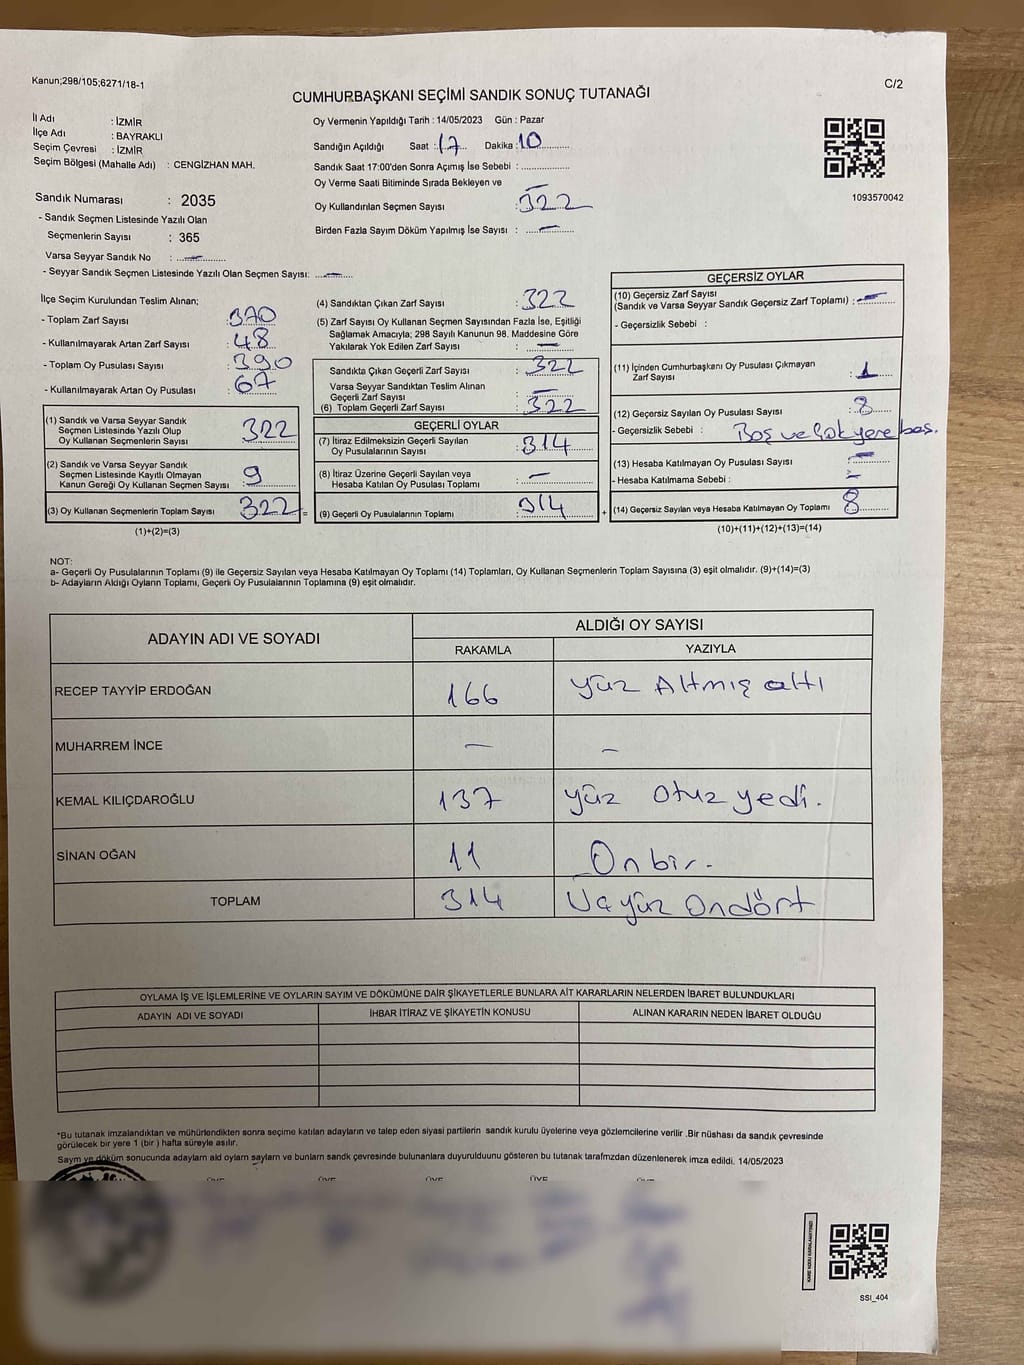 Kanun;298/105;6271/18-1
C/2
CUMHURBAŞKANI SEÇİMİ SANDIK SONUÇ TUTANAĞI
İl Adı : İZMİR
İlçe Adı : BAYRAKLI
Seçim Çevresi : İZMİR
Seçim Bölgesi (Mahalle Adı) : CENGİZHAN MAH.
Oy Vermenin Yapıldığı Tarih : 14/05/2023 Gün : Pazar
Sandığın Açıldığı Saat : 17 Dakika : 10
Sandık Saat 17:00'den Sonra Açımış İse Sebebi :
Oy Verme Saati Bitiminde Sırada Bekleyen ve
Oy Kullandırılan Seçmen Sayısı : 322
Birden Fazla Sayım Döküm Yapılmış İse Sayısı : —
1093570042
Sandık Numarası : 2035
- Sandık Seçmen Listesinde Yazılı Olan
Seçmenlerin Sayısı : 365
Varsa Seyyar Sandık No : —
- Seyyar Sandık Seçmen Listesinde Yazılı Olan Seçmen Sayısı: —
İlçe Seçim Kurulundan Teslim Alınan;
- Toplam Zarf Sayısı : 370
- Kullanılmayarak Artan Zarf Sayısı : 48
- Toplam Oy Pusulası Sayısı : 390
- Kullanılmayarak Artan Oy Pusulası : 67
(1) Sandık ve Varsa Seyyar Sandık
Seçmen Listesinde Yazılı Olup
Oy Kullanan Seçmenlerin Sayısı 322
(2) Sandık ve Varsa Seyyar Sandık
Seçmen Listesinde Kayıtlı Olmayan
Kanun Gereği Oy Kullanan Seçmen Sayısı : 9
(3) Oy Kullanan Seçmenlerin Toplam Sayısı 322 =
(1)+(2)=(3)
(4) Sandıktan Çıkan Zarf Sayısı : 322
(5) Zarf Sayısı Oy Kullanan Seçmen Sayısından Fazla İse, Eşitliği
Sağlamak Amacıyla; 298 Sayılı Kanunun 98. Maddesine Göre
Yakılarak Yok Edilen Zarf Sayısı : —
Sandıkta Çıkan Geçerli Zarf Sayısı : 322
Varsa Seyyar Sandıktan Teslim Alınan
Geçerli Zarf Sayısı : —
(6) Toplam Geçerli Zarf Sayısı : 322
GEÇERLİ OYLAR
(7) İtiraz Edilmeksizin Geçerli Sayılan
Oy Pusulalarının Sayısı : 314
(8) İtiraz Üzerine Geçerli Sayılan veya
Hesaba Katılan Oy Pusulası Toplamı : —
(9) Geçerli Oy Pusulalarının Toplamı : 314 +
GEÇERSİZ OYLAR
(10) Geçersiz Zarf Sayısı
(Sandık ve Varsa Seyyar Sandık Geçersiz Zarf Toplamı) : —
- Geçersizlik Sebebi :
(11) İçinden Cumhurbaşkanı Oy Pusulası Çıkmayan
Zarf Sayısı : 1
(12) Geçersiz Sayılan Oy Pusulası Sayısı : 8
- Geçersizlik Sebebi :
(13) Hesaba Katılmayan Oy Pusulası Sayısı : —
- Hesaba Katılmama Sebebi : —
(14) Geçersiz Sayılan veya Hesaba Katılmayan Oy Toplamı 8
(10)+(11)+(12)+(13)=(14)
NOT:
a- Geçerli Oy Pusulalarının Toplamı (9) ile Geçersiz Sayılan veya Hesaba Katılmayan Oy Toplamı (14) Toplamları, Oy Kullanan Seçmenlerin Toplam Sayısına (3) eşit olmalıdır. (9)+(14)=(3)
b- Adayların Aldığı Oyların Toplamı, Geçerli Oy Pusulalarının Toplamına (9) eşit olmalıdır.
ADAYIN ADI VE SOYADI
ALDIĞI OY SAYISI
RAKAMLA YAZIYLA
RECEP TAYYİP ERDOĞAN 166 yüz Altmış altı
MUHARREM İNCE — —
KEMAL KILIÇDAROĞLU 137 yüz otuz yedi.
SİNAN OĞAN 11 On bir.
TOPLAM 314 Üçyüz Ondört
OYLAMA İŞ VE İŞLEMLERİNE VE OYLARIN SAYIM VE DÖKÜMÜNE DAİR ŞİKAYETLERLE BUNLARA AİT KARARLARIN NELERDEN İBARET BULUNDUKLARI
ADAYIN ADI VE SOYADI İHBAR İTİRAZ VE ŞİKAYETİN KONUSU ALINAN KARARIN NEDEN İBARET OLDUĞU
*Bu tutanak imzalandıktan ve mühürlendikten sonra seçime katılan adayların ve talep eden siyasi partilerin sandık kurulu üyelerine veya gözlemcilerine verilir .Bir nüshası da sandık çevresinde
görülecek bir yere 1 (bir ) hafta süreyle asılır.
Saym ve döküm sonucunda adaylarn ald oylarn saylarn ve bunlarn sandk çevresinde bulunanlara duyurulduunu gösteren bu tutanak tarafmzdan düzenlenerek imza edildi. 14/05/2023
ÜYE ÜYE ÜYE ÜYE ÜYE
SSI_404